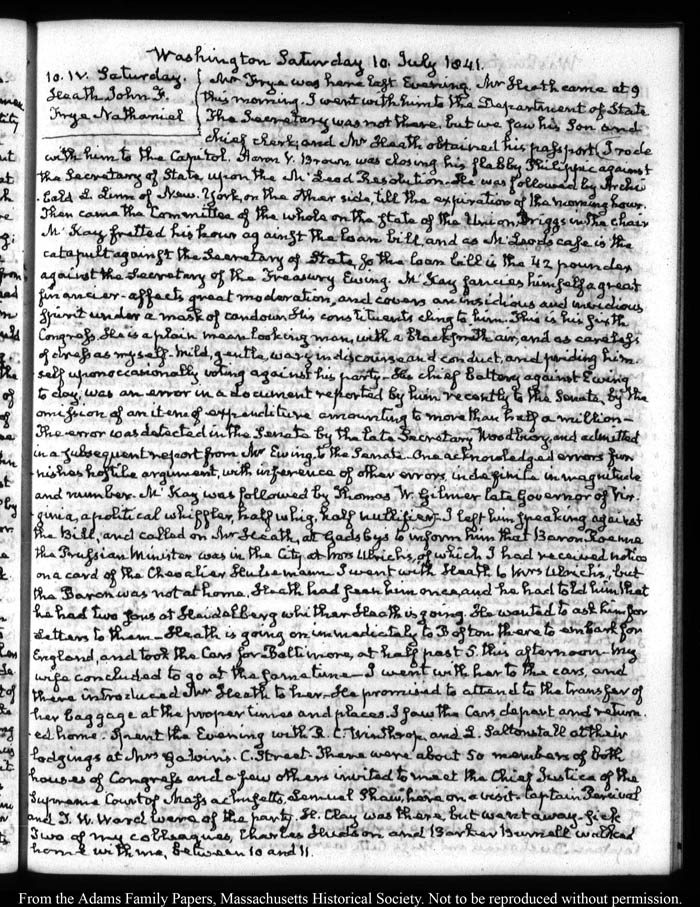 Washington Saturday 10. July 1841.
10. IV. Saturday.
Heath John F.
Frye Nathaniel
Mr Frye was here last Evening. Mr Heath came at 9
this morning. I went with him to the Department of State
The Secretary was not there, but we saw his Son and
chief clerk; and Mr Heath obtained his passport, I rode
with him to the Capitol. Aaron V. Brown was closing his flabby Philippic against
the Secretary of State, upon the Mc Leod Resolution. He was followed by Archi-
bald L. Linn of New-York, on the other side, till the expiration of the morning hour.
Then came the Committee of the whole on the state of the Union, Briggs in the chair
Mc Kay fretted his hour against the loan bill, and as Mc Leods case is the
catapult against the Secretary of State, so the loan bill is the 42 pounder
against the Secretary of the Treasury Ewing. Mc Kay fancies himself a great
financier—affects great moderation, and covers an insidious and invidious
spirit under a mask of candour. His constituents cling to him. This is his sixth
Congress. He is a plain mean looking man, with a blacksmith air, and as careless
of dress as myself. Mild, gentle, wary in discourse and conduct, and priding him-
self upon occasionally voting against his party—His chief battery against Ewing
to day, was an error in a document reported by him recently to the Senate, by the
omission of an item of expenditure amounting to more than half a million—
The error was detected in the Senate by the late Secretary Woodbury, and admitted
in a subsequent report from Mr Ewing to the Senate. One acknowledged errors fur-
nishes hostile argument, with inference of other errors, indefinite in magnitude
and number. Mc Kay was followed by Thomas W. Gilmer late Governor of Vir-
ginia, a political whiffler, half whig, half nullifier—I left him speaking against
the Bill, and called on Mr Heath, at Gadsby's to inform him that Baron Roenne
the Prussian Minister was in the City, at Mrs Ulrichs, of which I had received notice
on a card of the Chevalier Hulsemann. I went with Heath to Mrs Ulrichs, but
the Baron was not at home. Heath had seen him once, and he had told him that
he had two sons at Heidelberg whither Heath is going. He wanted to ask him for
Letters to them—Heath is going on immediately to Boston there to embark for
England, and took the Cars for Baltimore, at half past 5. this afternoon—My
wife concluded to go at the same time—I went with her to the cars, and
there introduced Mr Heath to her. He promised to attend to the transfer of
her baggage at the proper times and places. I saw the Cars depart and return-
ed home. Spent the Evening with R. C. Winthrop, and L. Saltonstall at their
lodgings at Mrs Galvins. C. Street. There were about 50 members of both
houses of Congress and a few others invited to meet the Chief Justice of the
Supreme Court of Massachusetts, Lemuel Shaw, here on a visit. Captain Percival
and T. W. Ward were of the party. H. Clay was there, but went away sick
Two of my colleagues, Charles Hudson and Barker Burnell walked
home with me, between 10 and 11.
From the Adams Family Papers, Massachusetts Historical Society. Not to be reproduced without permission.